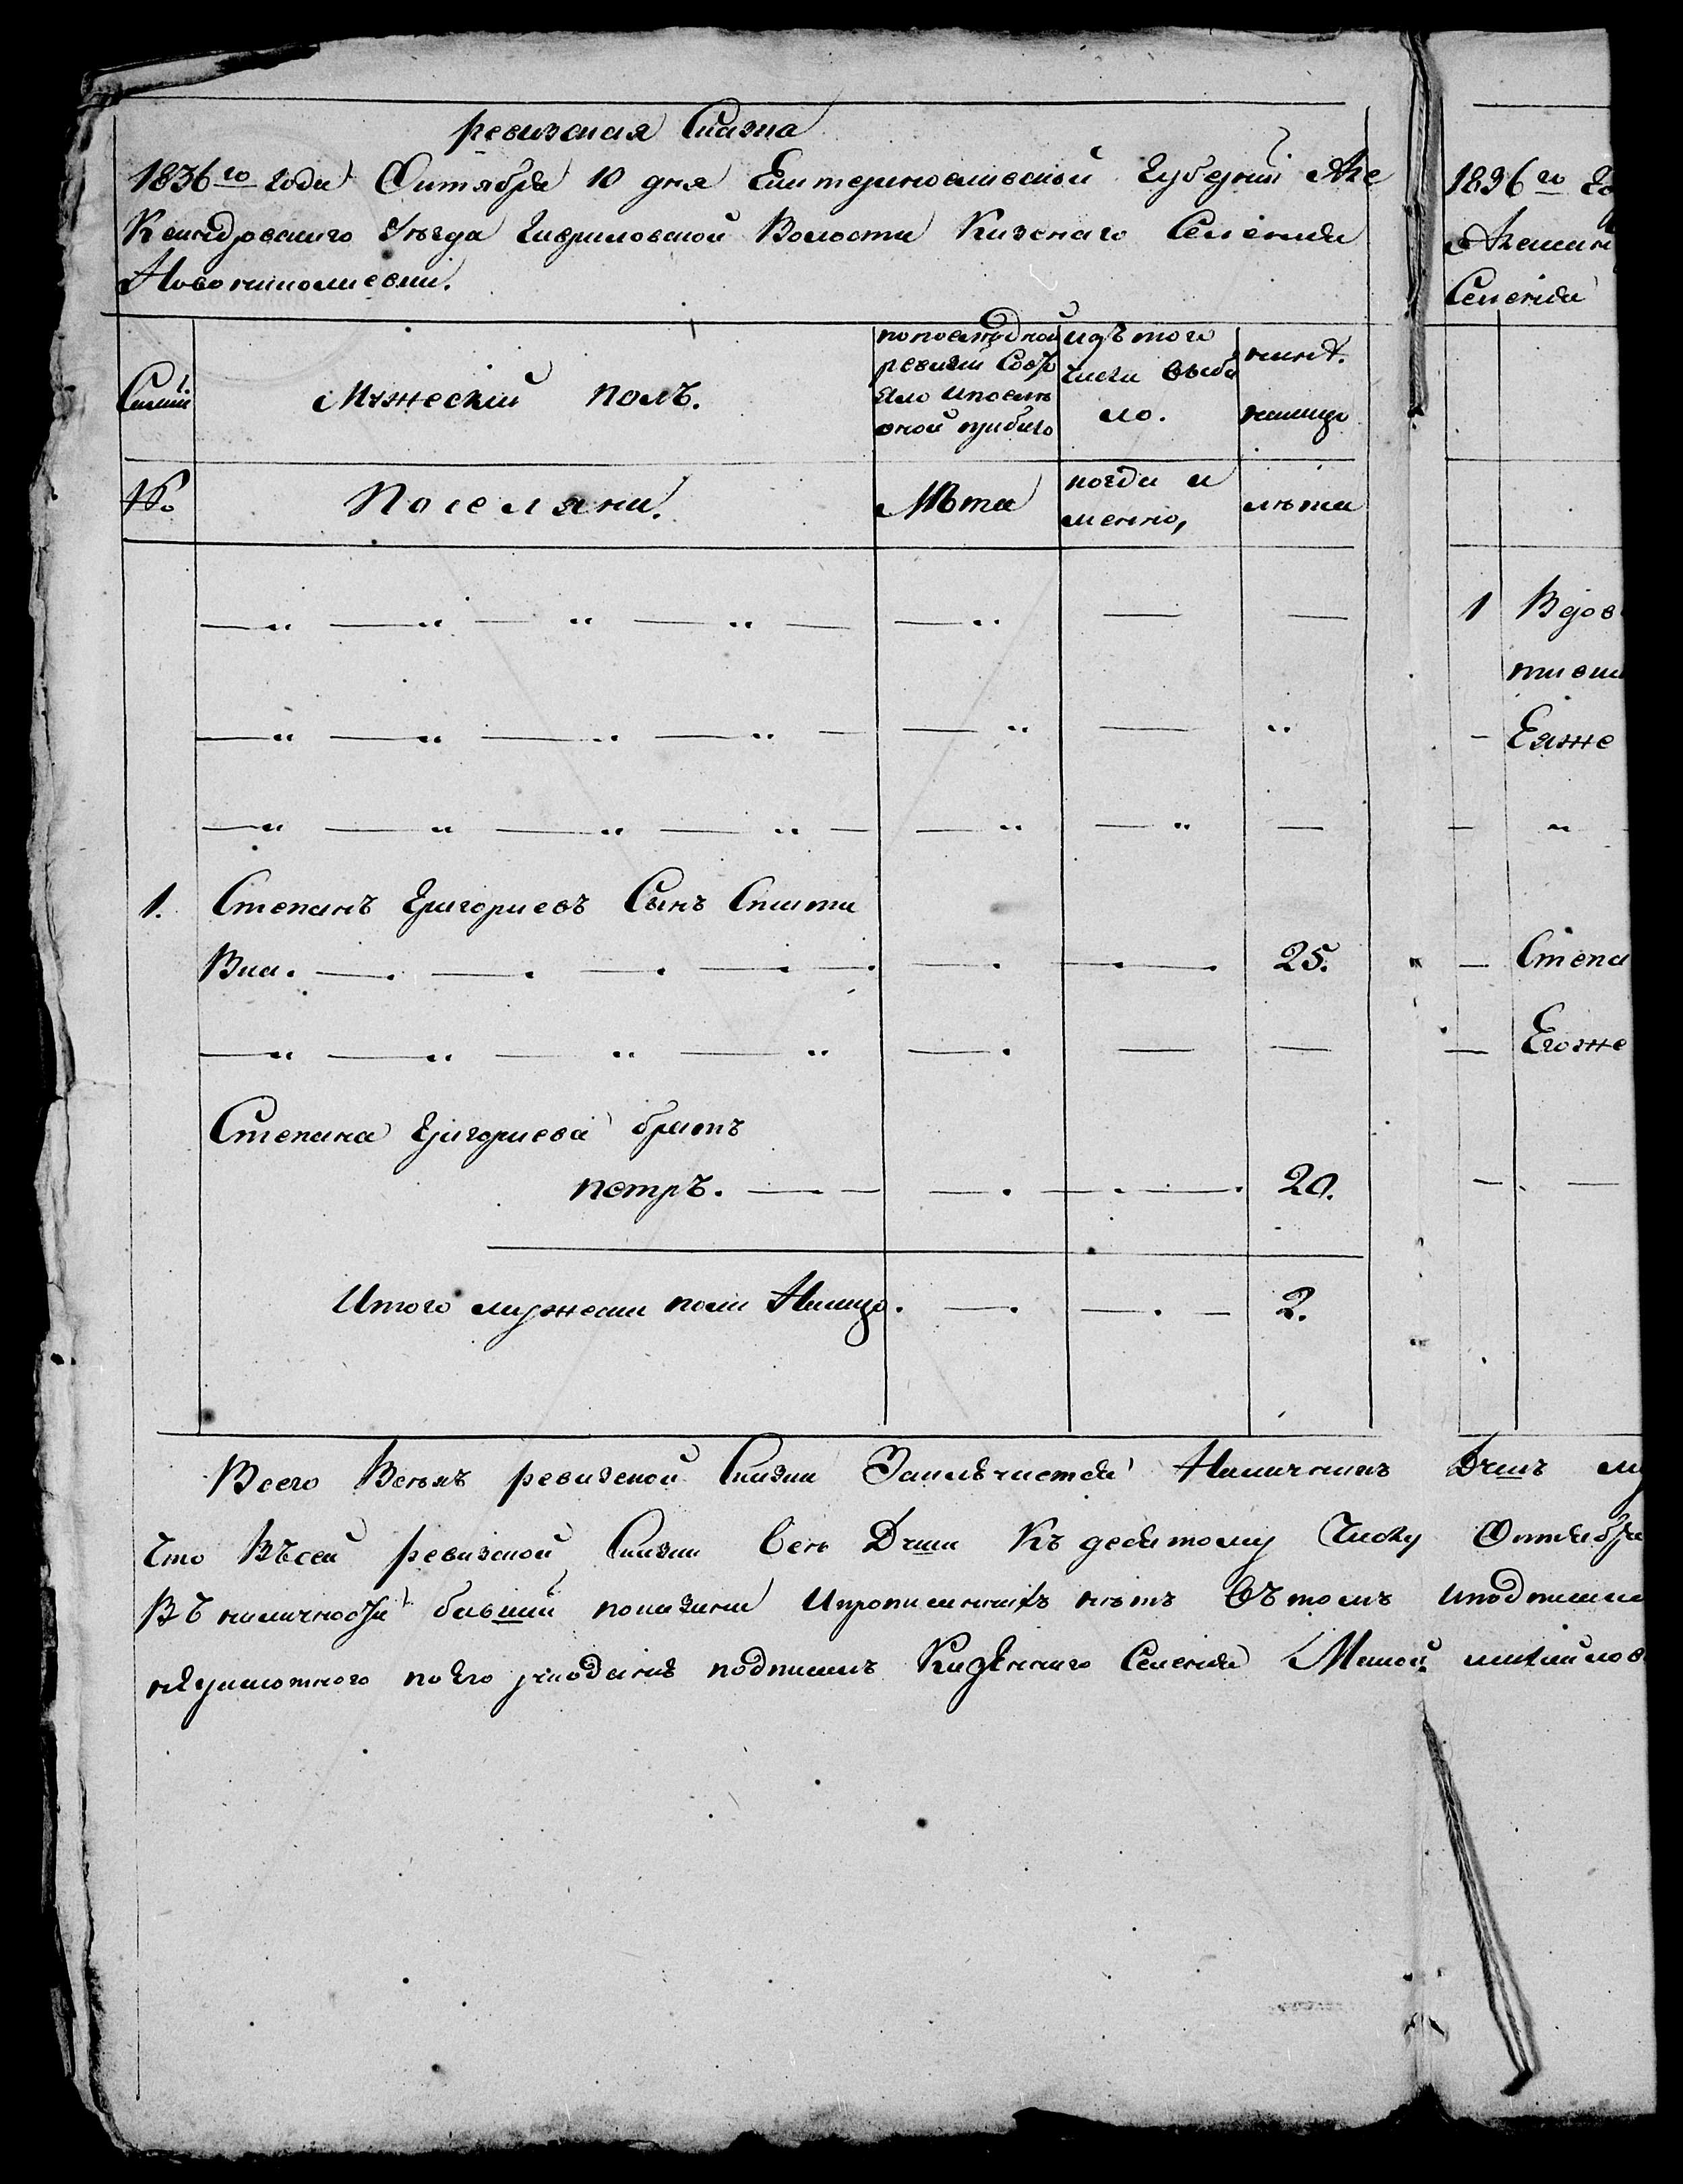 ревизская Сказка
1836го года Октября 10 дня Екатеринославской Губернии Але
Ксандровскаго Уезда Гавриловской Волости Казенаго Селения
Новониколаевки.
Семьи
Мужеский полъ.
по последной
ревизии Состо
яло и после
оной прибыло
изъ того
числа выбы
ло.
ныне.
налицо
№
Поселяни.
Лѣта
когда и
менно,
лѣта
1. Степанъ Григориевъ Сынъ
25.
Степана Григориева братъ
петръ. 20.
Итого мужеска пола Налицо. 2.
Всего Всей ревизской Сказки Наличныхъ Душъ му
Что Въ сей ревизской Сказки Все Души Къ десятому Числу Октября
Въ наличности бывший показани И прописанныхъ нетъ Въ томъ и подписи
неграмотного по Его подписалъ Казенного Селения михайлов
1836го Го
Селения
1 Вдов
Еяже
Степа
Егоже